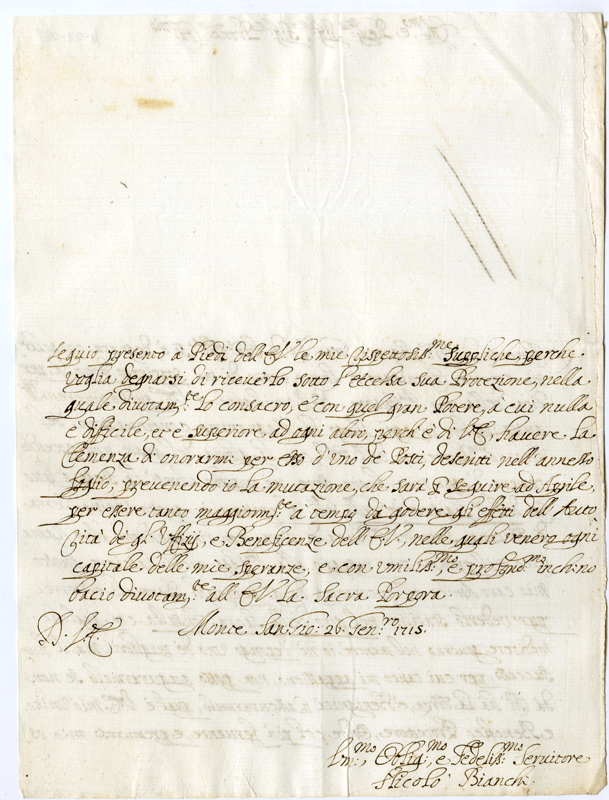 sequio presento a Piedi dell'E.V. le mie rispettosis:me suppliche perche
voglia degnarsi di riceverlo sotto l'eccelsa sua Protezione, nella
quale divotam:te lo consacro, e con quel gran Potere, a cui nulla
è difficile, et è superiore ad ogni altro, perch'è di V.E., havere la
Clemenza di onorarmi per esso d'uno de Posti, descritti nell'annesso
foglio, prevenendo io la mutazione, che sarà p seguire ad Aprile,
per essere tanto maggiorm:te a tempo da godere gli effetti dell'Auto
rità de gl'Uffizij, e Beneficenze dell'E.V., nelle quali venero ogni
capitale delle mie speranze, e con umiliss:mo, e profond:mo inchino
bacio divotam:te all'E.V. la Sacra Porpora.
D. V.E. Monte San Gio: 26 Gen:ro 1715.
Um:mo Oblig:mo e Fedelis:mo Servitore
Nicolò Bianchi